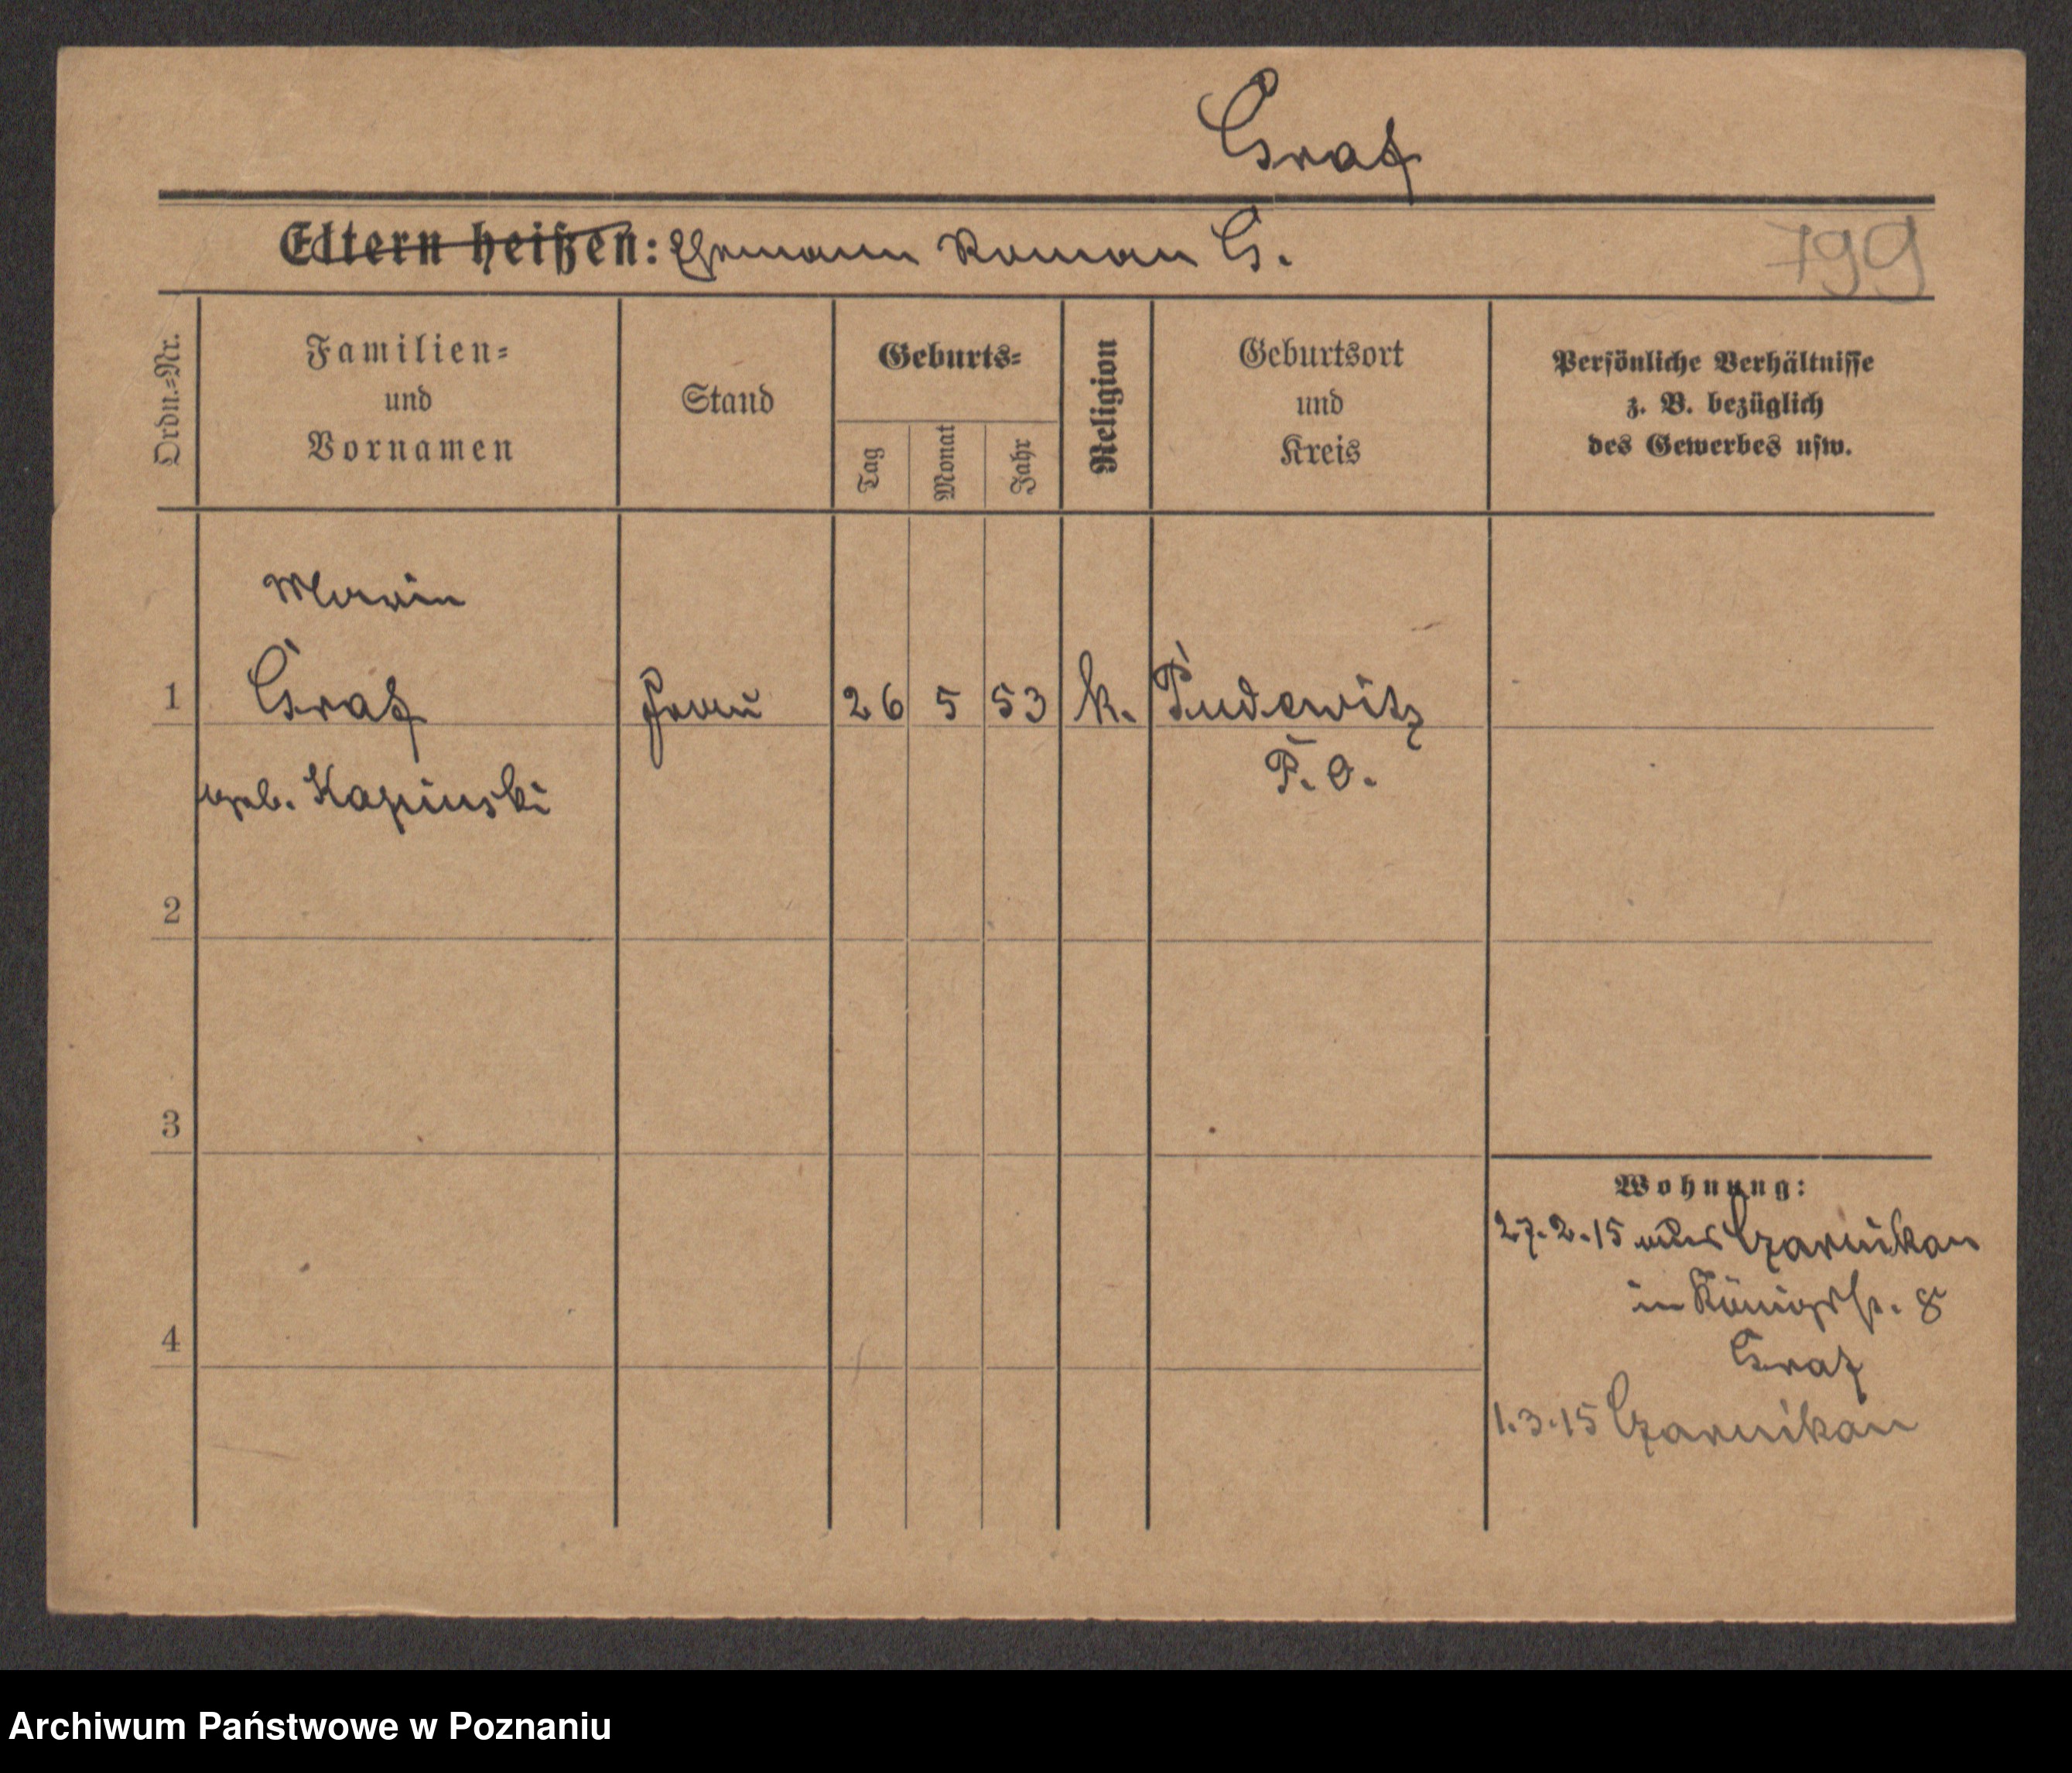 Graf
Eltern heißen: Ehemann Roman G.
799
Ordn.=Nr.
Familien=
und
Vornamen
Stand
Geburts=
Tag
Monat
Jahr
Religion
Geburtsort
und
Kreis
Persönliche Verhältnisse
z. B. bezüglich
des Gewerbes usw.
Maria
1 Graf Frau 26 5 53 k. Pudewitz
P. O.
geb. Kapinski
2
3
4
Wohnung:
27.2.15 aus Czarnikau
in Königstr. 8
Graf
1.3.15 Czarnikau
Archiwum Państwowe w Poznaniu